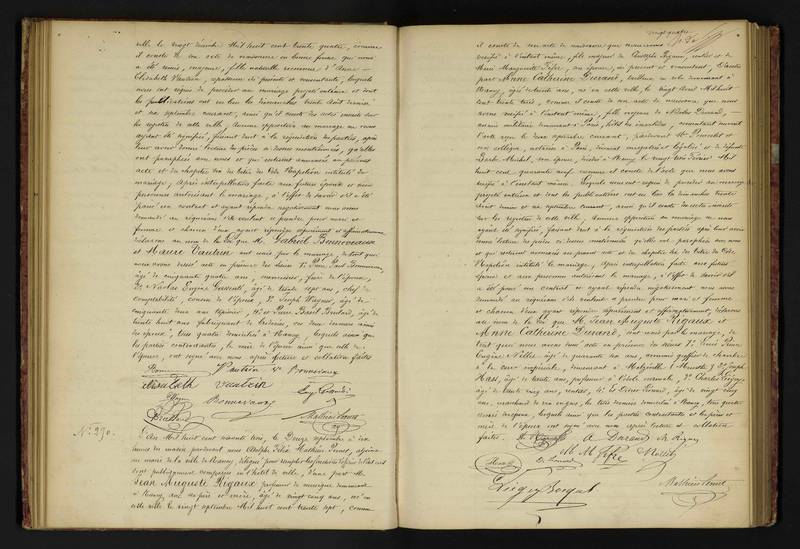 ville le vingt Mil huit cent trente quatre, comme
il conste de son acte de naissance en bonne forme que nous
a été remis, majeure, fille naturelle reconnue d'Anne
Elisabeth Vautrin, repasseuse ci présente et consentante, lesquels
nous ont requis de procéder au mariage projeté entre eux et dont
les publications ont eu lieu les dimanches trente Août dernier
et six septembre courant, ainsi qu'il conste des actes inscrits sur
les registres de cette ville. Aucune opposition au mariage ne nous
ayant été signifiée, faisant droit à la réquisition des parties, après
leur avoir donné lecture des pièces ci dessus mentionnées, qu'elles
ont paraphées avec nous et qui resteront annexées au présent
acte et du chapitre six du titre du Code Napoléon intitulé du
mariage, Après interpellation faite aux futurs époux et aux
personnes autorisant le mariage, à l'effet de savoir s'il a été
passé un contrat et ayant répondu négativement nous avons
demandé au réquérans s'ils veulent se prendre pour mari et
femme et chacun d'eux ayant répondu séparément et affirmativement
déclarons au nom de la loi que M. Gabriel Bonnevaux
et Marie Vautrin sont unis par le mariage, de tout quoi
nous avons dressé acte en présence des sieurs 1° Paul Bonnevaux,
âgé de cinquante quatre ans, menuisier, père de l'époux,
2° Nicolas Eugène âgé de trente sept ans, chef de
comptabilité, cousin de l'époux, 3° Joseph Wagner, âgé de
cinquante deux ans tapissier, 4° et Pierre Basil âgé de
trente huit ans fabriquant de broderies, ces deux derniers amis
des époux, tous quatre domiciliés à Nancy, lesquels ainsi que
les parties contractantes, la mère de l'époux ainsi que celle de
l'épouse, ont signé avec nous après lecture et collation faites
Vautrin Ve Bonnevaux
Vautrin
Wagner Bonnevaux
Mathieu Pinet
N° 290.
L'An Mil huit cent soixante trois, le Douze septembre à dix
heures du matin pardevant nous Adolphe Félix Mathieu Pinet, adjoint
au maire de la ville de Nancy délégué pour remplir les fonctions d'officier de l'état civil
sont publiquement comparus en l'hôtel de ville, d'une part M.
Jean Auguste Rigaux professeur de musique demeurant
à Nancy avec ses père et mère, âgé de vingt cinq ans, né en
cette ville le vingt septembre Mil huit cent trente sept, comme
vingt quatre
il conste de son acte de naissance que nous avons
vérifié à l'instant même, fils majeur de Joseph Rigaux, rentier et de
Marie Marguerite Fève, son épouse, ci présents et consentants, D'autre
part Anne Catherine Durand, tailleuse en robes demeurant à
Nancy, âgée de trente ans, née en cette ville, le vingt Avril Mil huit
cent trente trois, comme il conste de son acte de naissance que nous
avons vérifié à l'instant même, fille majeure de Nicolas Durand,
ancien militaire demeurant à Paris, hôtel des invalides, consentant suivant
l'acte reçu le deux septembre courant, pardevant Me et
son collègue, notaires à Paris, dûment enregistré et légalisé et de défunte
Barbe Michel, son épouse, décédée à Nancy le vingt trois Février Mil
huit cent quarante neuf comme il conste de l'acte que nous avons
vérifié à l'instant même. Lesquels nous ont requis de procéder au mariage
projeté entre eux et dont les publications ont eu lieu les dimanches trente
Août dernier et six septembre courant, ainsi qu'il conste des actes inscrits
sur les registres de cette ville, Aucune opposition au mariage ne nous
ayant été signifiée, faisant droit à la réquisition des parties après leur avoir
donné lecture des pièces ci dessus mentionnées qu'elles ont paraphées avec nous
et qui resteront annexées au présent acte et du chapitre six du titre du Code
Napoléon intitulé du mariage, Après interpellation faite aux futurs
époux et aux personnes autorisant le mariage, à l'effet de savoir s'il
a été passé un contrat et ayant répondu négativement nous avons
demandé au réquérans s'ils veulent se prendre pour mari et femme
et chacun d'eux ayant répondu séparément et affirmativement, déclarons
au nom de la loi que M. Jean Auguste Rigaux et
Anne Catherine Durand, sont unis par le mariage, de
tout quoi nous avons dressé acte en présence des sieurs 1° Louis
Eugène âgé de quarante six ans, commis greffier de chambre
à la cour impériale, demeurant à Malzéville (Meurthe) 2° Joseph
Hass, âgé de trente ans, professeur à l'école normale, 3° Charles
âgé de trente cinq ans, rentier, 4° et âgé de vingt cinq
ans, marchand de vin en gros, les trois derniers domiciliés à Nancy, tous quatre
amis des époux, lesquels ainsi que les parties contractantes et les père et
mère de l'époux ont signé avec nous après lecture et collation
faites. A. Rigaux A Durand Rigaux
M M Fève
Mathieu Pinet